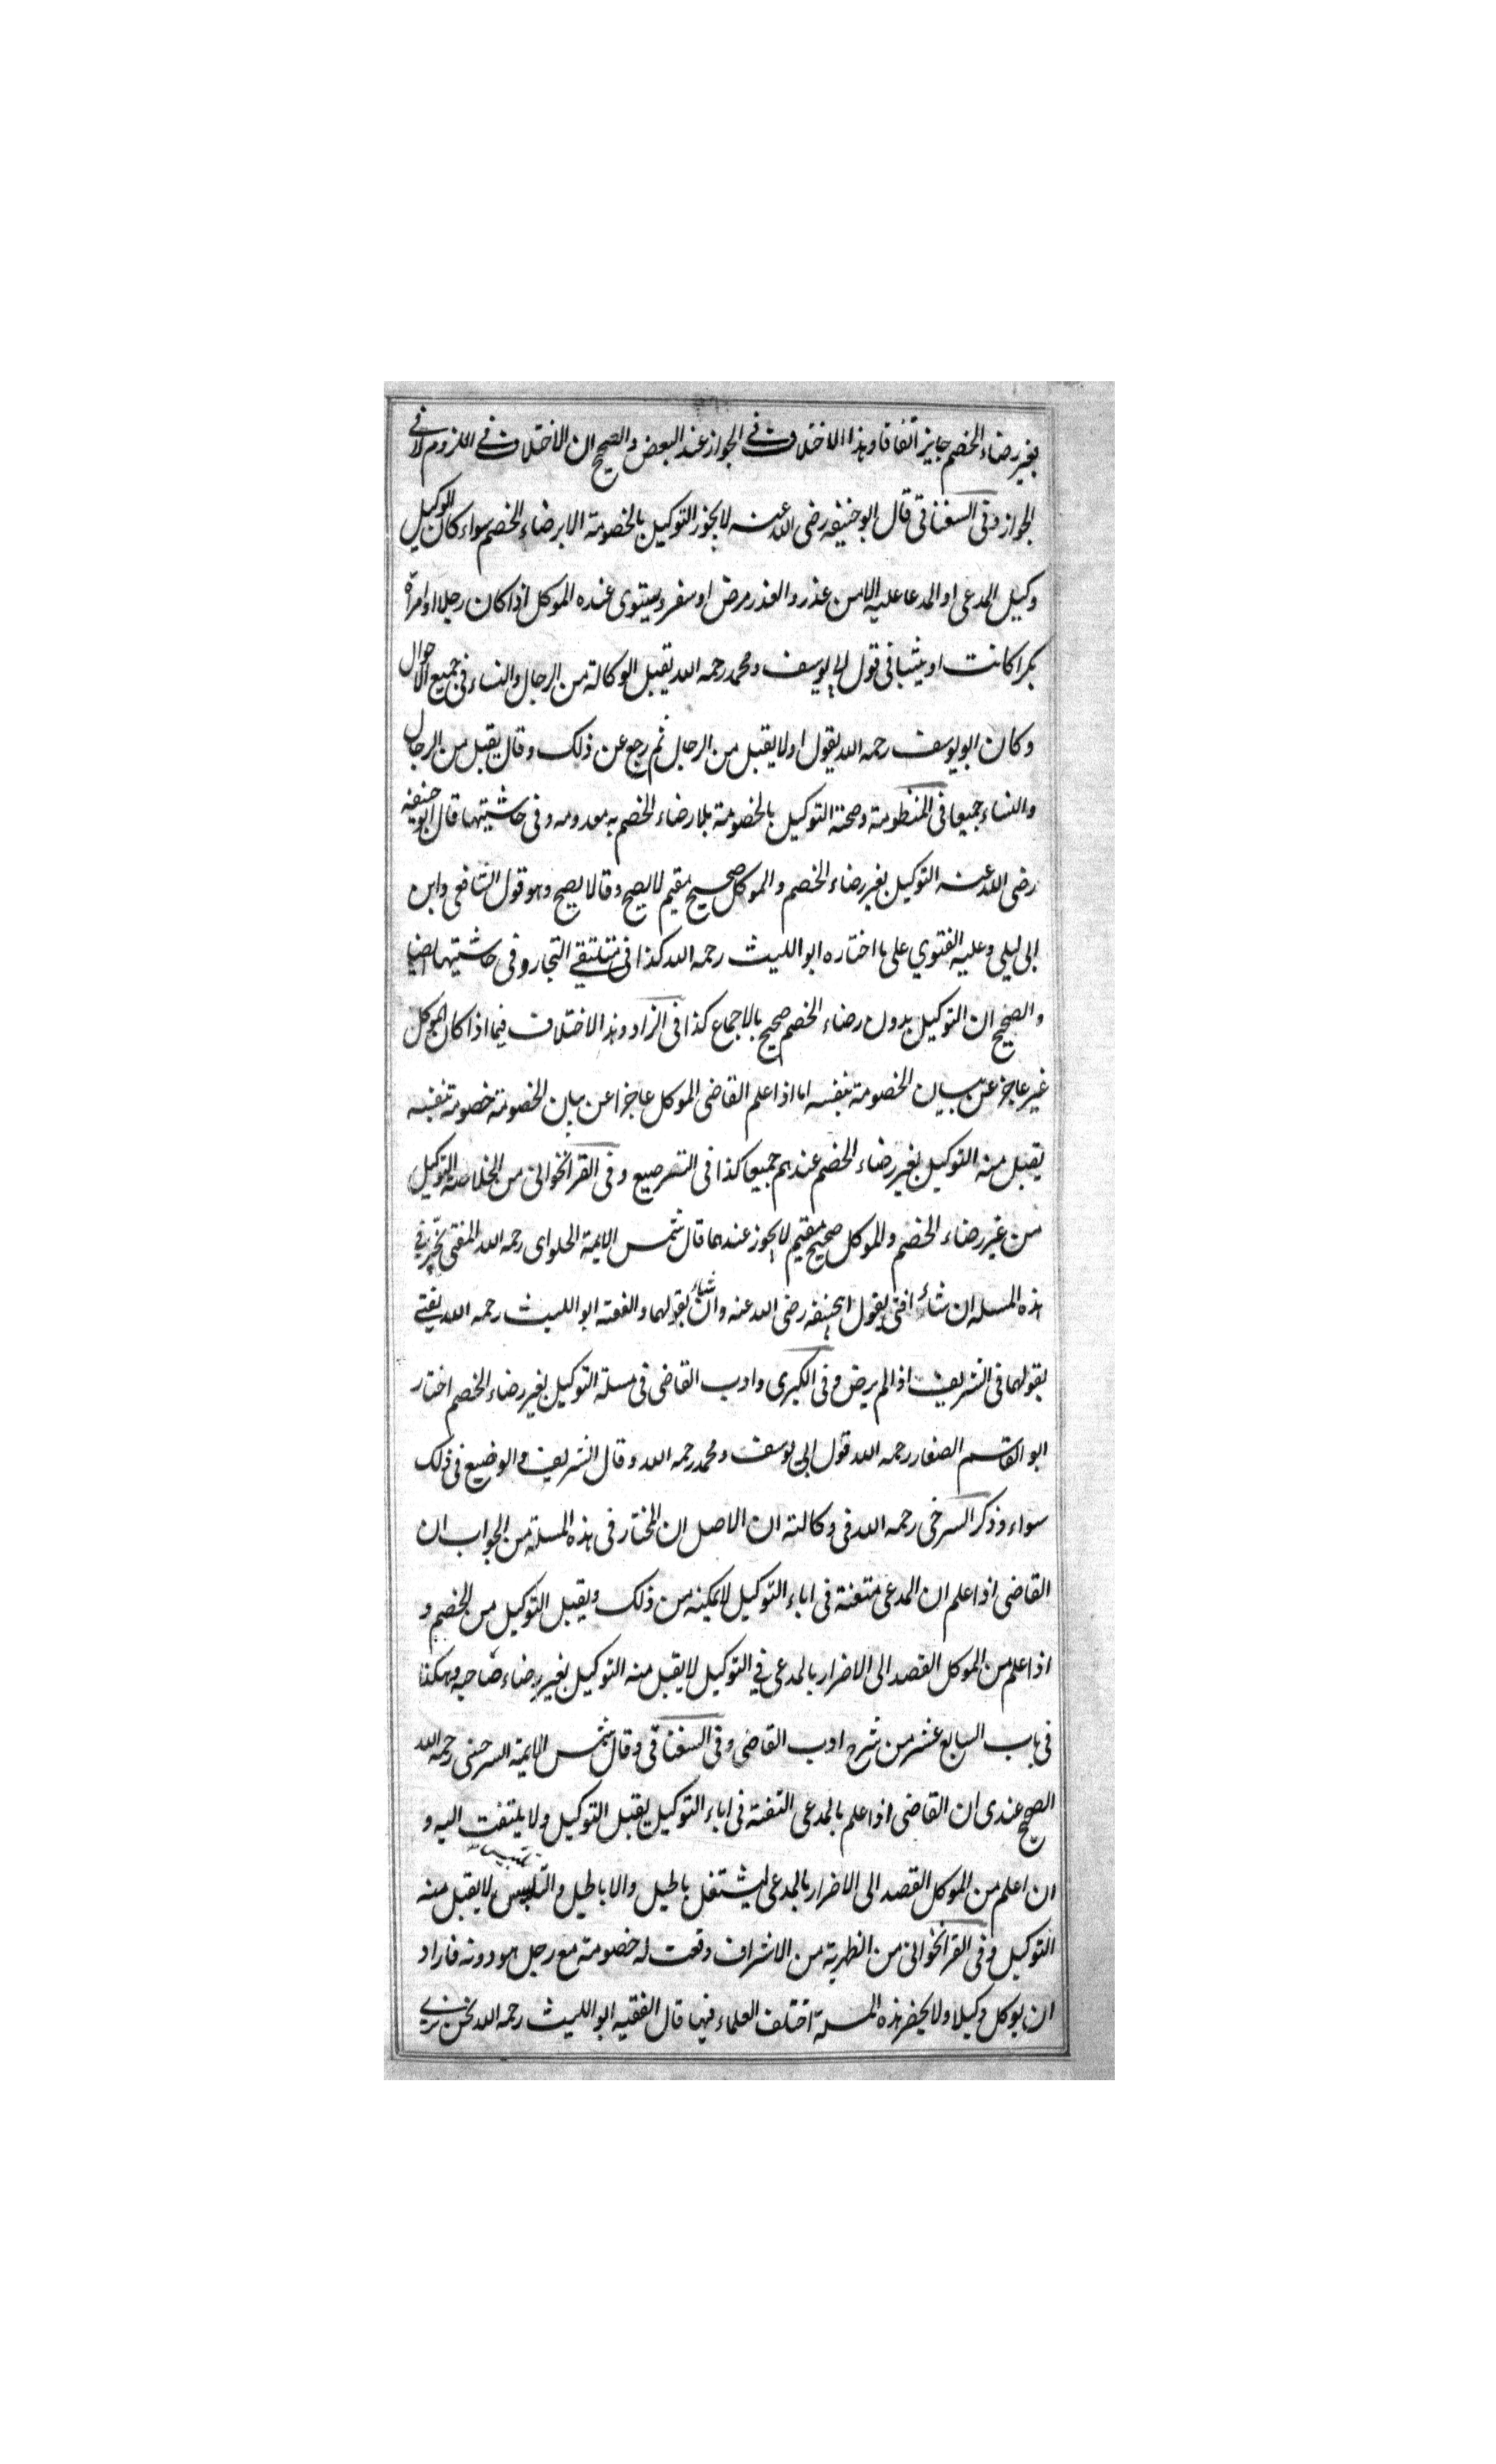 بغير رضاء الخصم جايز اتفاقا وهذا الاختلاف في الجواز عند البعض والصحيح ان الاختلاف في اللزوم لا في
الجواز وفى السغناقى قال ابو حنيفه رضى الله عنه لا يجوز التوكيل بالخصومة الا برضاء الخصم سواء كان الوكيل
وكيل المدعى او المدعا عليه الا من عذر والعذر مرض او سفر ويستوى عنده الموكل اذا كان رجلا او امرأة
بكرا كانت او ثيبا فى قول ابى يوسف ومحمد رحمه الله يقبل الوكالة من الرجال والنساء فى جميع الاحوال
وكان ابو يوسف رحمه الله يقول اولا يقبل من الرجال ثم رجع عن ذلك وقال يقبل من الرجال
والنساء جميعا فى المنظومة وصحة التوكيل بالخصومة بلا رضاء الخصم به معدومه وفى حاشيتها قال ابو حنيفه
رضى الله عنه التوكيل بغير رضاء الخصم والموكل صحيح مقيم لا يصح وقالا يصح وهو قول الشافعى وابن
ابى ليلى وعليه الفتوي على ما اختاره ابو الليث رحمه الله كذا فى ملتقى التجار وفى حاشيتها ايضا
والصحيح ان التوكيل بدون رضاء الخصم صحيح بالاجماع كذا فى الزاد وهذا الاختلاف فيما اذا كان الموكل
غير عاجز عن بيان الخصومة بنفسه اما اذا علم القاضى الموكل عاجزا عن بيان الخصومة خصومة بنفسه
يقبل منه التوكيل بغير رضاء الخصم عندهم جميعا كذا فى الترصيع وفى القراخوانى من الخلاصة التوكيل
من غير رضاء الخصم والموكل صحيح مقيم لا يجوز عندهما قال شمس الايمة الحلواى رحمه الله المفتى يخير في
هذه المسله ان شاء افتى بقول ابيحنيفه رضى الله عنه وان شاء بقولهما والفقيه ابو الليث رحمه الله يفتے
بقولهما فى الشريف اذا لم يرض وفى الكبرى وادب القاضى فى مسلة التوكيل بغير رضاء الخصم اختار
ابو القاسم الصفار رحمه الله قول ابى يوسف ومحمد رحمه الله وقال الشريف والوضيع فى ذلك
سواء وذكر السرخى رحمه الله فى وكالته ان الاصل ان المختار فى هذه المسلة من الجواب ان
القاضى اذا علم ان المدعى متعنة فى اباء التوكيل لا يمكينه من ذلك ويقبل التوكيل من الخصم و
اذا علم من الموكل القصد الى الاضرار بالمدعى في التوكيل لا يقبل منه التوكيل بغير رضاء صاحبه وهكذا
فى باب السابع عشر من شرح ادب القاضى وفى السغناقى وقال شمس الايمة السرخسى رحمه الله
الصحيح عندى ان القاضى اذا علم بالمدعى التعنة فى اباء التوكيل يقبل التوكيل ولا يلتفت اليه و
ان اعلم من الموكل القصد الى الاضرار بالمدعى ليشتغل باطيل والاباطيل والتلبيس لا يقبل منه
التوكيل وفى القراخوانى من الظهرية من الاشراف وقعت له خصومة مع رجل هو دونه فاراد
ان يوكل وكيلا ولا يحضر هذه المسلة اختلف العلماء فيها قال الفقيه ابو الليث رحمه الله نحن نرے